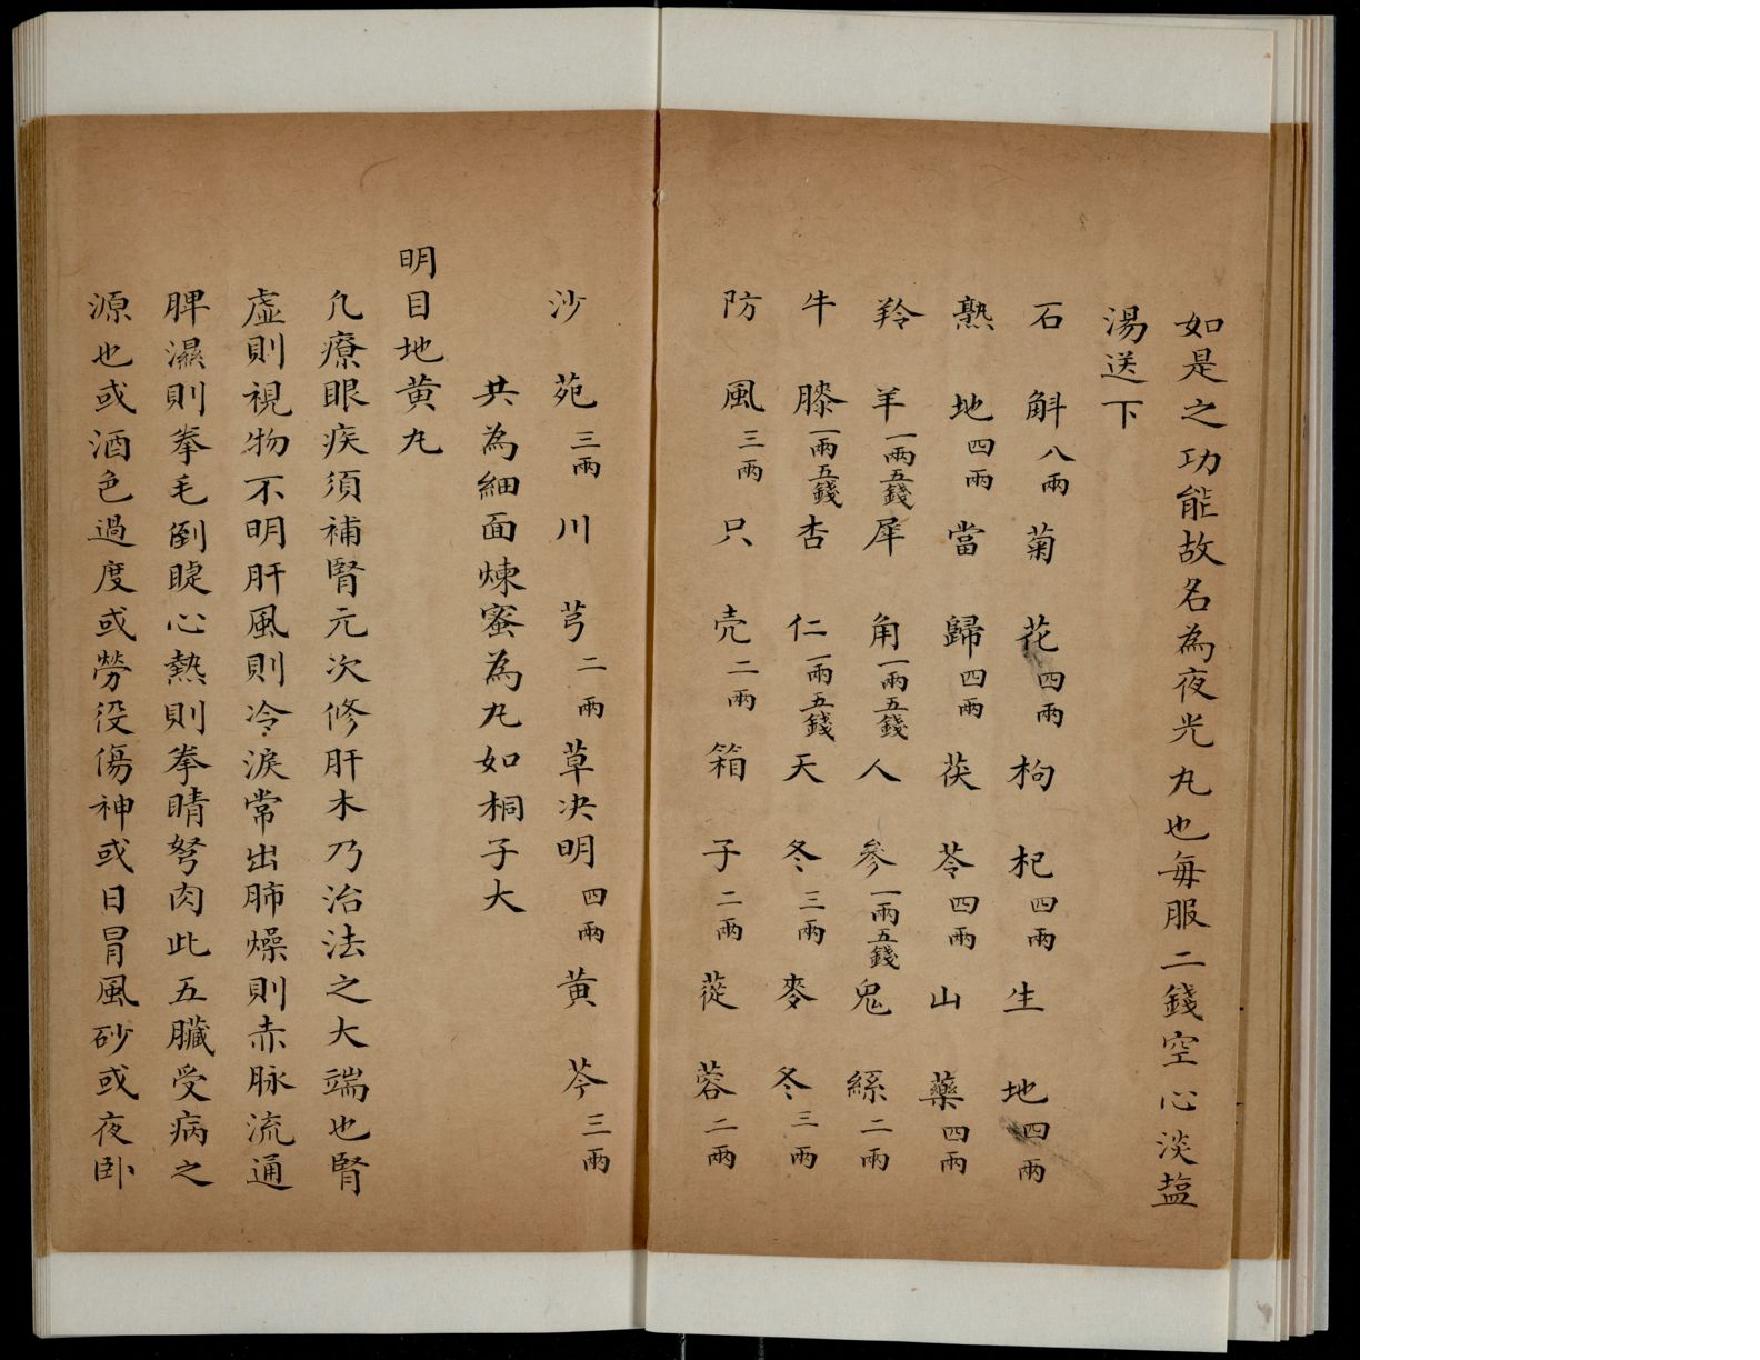 如是之功能故名為夜光丸也每服二錢空心淡塩
湯送下
石斛八兩菊花四兩枸杞四兩生地四兩
熟地四兩當歸四兩茯苓四兩山藥四兩
羚羊一兩五錢犀角一兩五錢人參一兩五錢鬼絲二兩
牛膝一兩五錢杏仁一兩五錢天冬三兩麥冬三兩
防風三兩只壳二兩箱子二兩蓯蓉二兩
沙苑三兩川芎二兩草决明四兩黄芩三兩
共為細面煉蜜為丸如桐子大
明目地黄丸
凢療眼疾須補腎元次修肝木乃治法之大端也腎
虛則視物不明肝風則冷淚常出肺燥則赤脉流通
脾濕則拳毛倒睫心熱則拳睛弩肉此五臟受病之
源也或酒色過度或勞役傷神或日冐風砂或夜卧